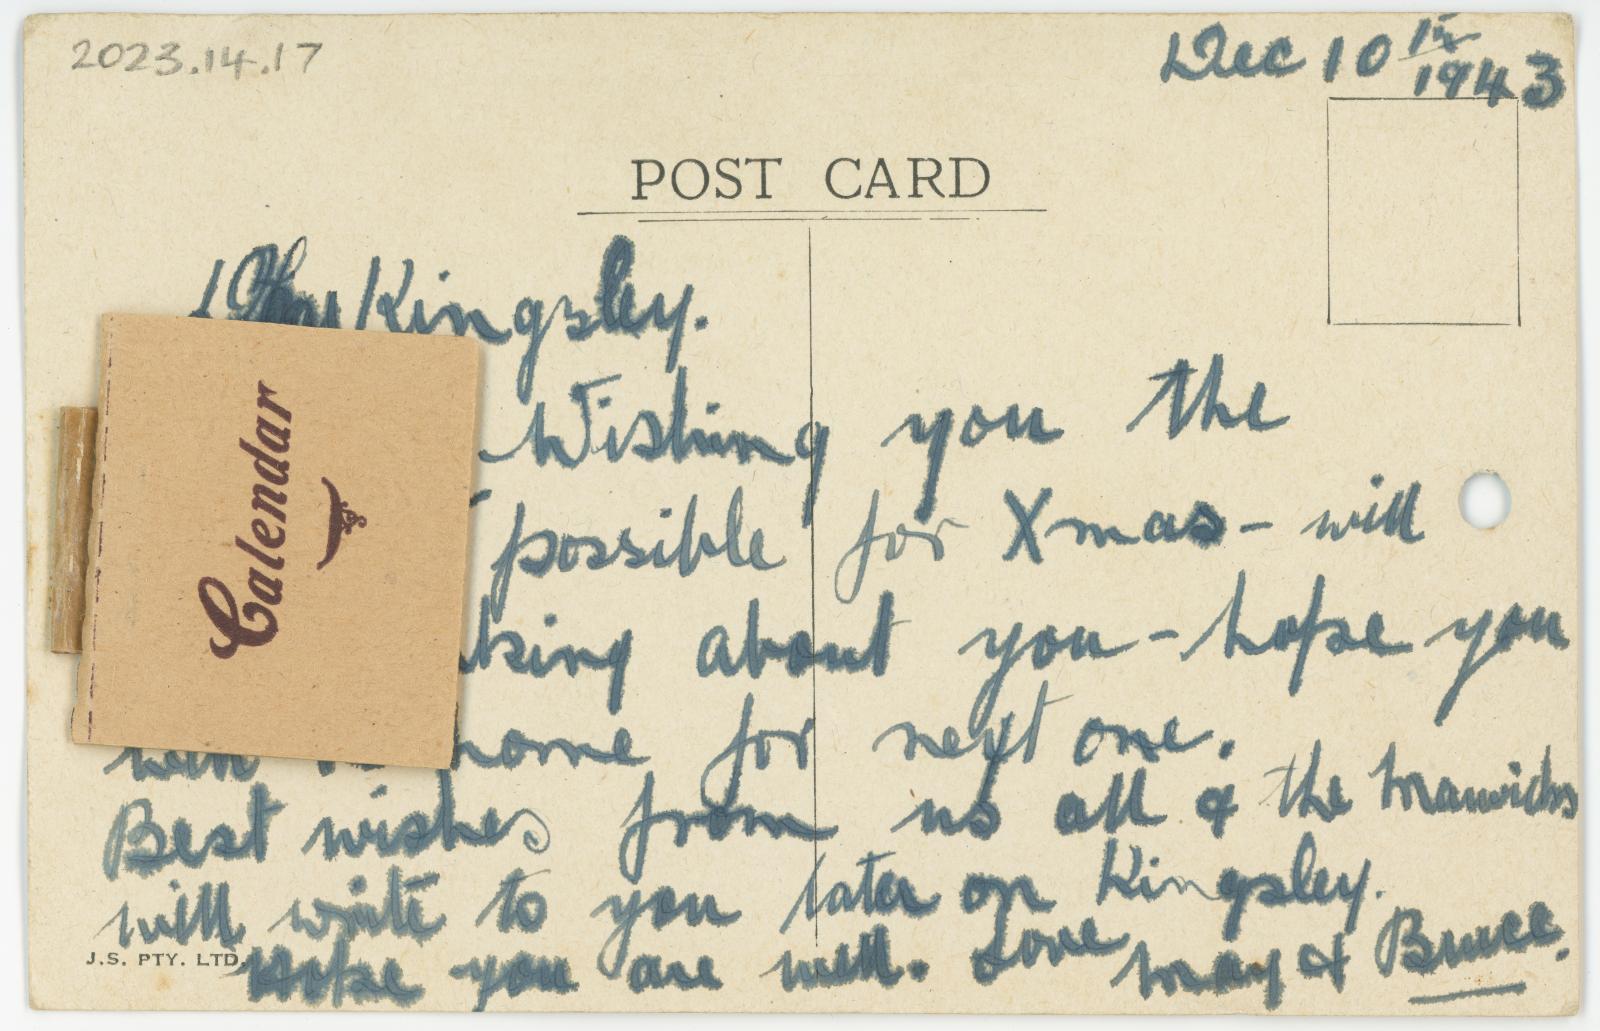 2023.14.17
Dec 10 12/1943
POST CARD
Kingsley.
Wishing you the
possible for Xmas - will
king about you - hope you
will be home for next one.
Best wishes from us all & the Marwicks
will write to you later on Kingsley.
Hope you are well. Love May & Bruce.
J.S. PTY. LTD.
Calendar